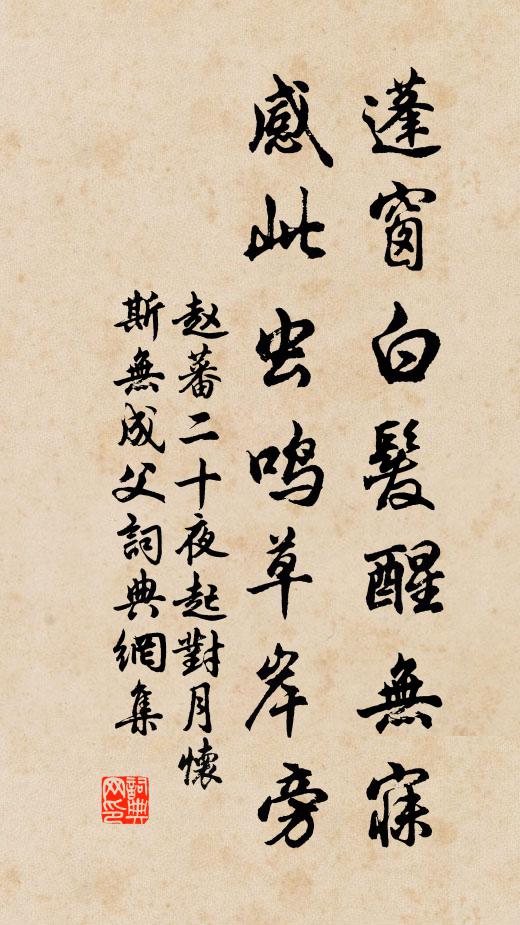 蓬窗白髮醒無寐
感此虫鸣草岸旁
赵蕃二十夜起對月懷
斯無成父詞典網集
詞典网印